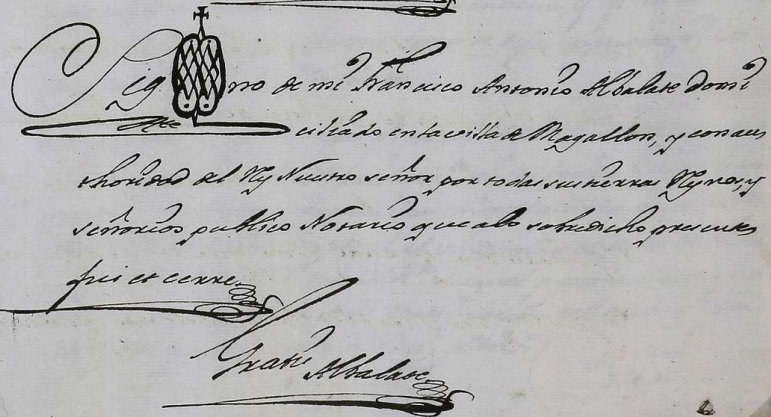 Sig no de mi Francisco Antonio Albalate domi
ciliado en la villa de Magallon, y con auc
thoridad del Rey Nuestro señor por todas sus tierras Reynos, y
señorios publico Notario que a lo sobredicho presente
fui et cerre
Albalate